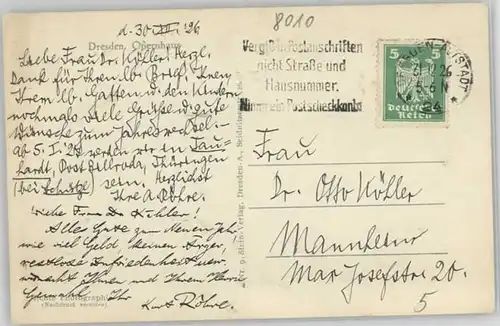 d. 30. XII. 26
8010
Dresden, Opernhaus
Liebe Frau Dr. Köller! Herzl.
Dank für Ihren lb. Brief, Ihnen,
Ihrem lb. Gatten u. den Kindern
nochmals viele Grüße u. gute
Wünsche zum Jahreswechsel.
ab 5. I. 27 werden wir in Tau-
hardt, Post Billroda, Thüringen
(bei Schulze) sein. Herzlichst
Ihre A. Röhre.
Liebe Frau Dr. Köhler!
Alles Gute zum Neuen Jahr
wie viel Geld, keinen Ärger,
restlose Zufriedenheit usw.
wünscht Ihnen und Ihrem Herrn
Gemahl Ihr
Kurt Röhre.
Photograph
(Nachdruck verboten)
Stein-Verlag, Dresden-A.
Vergiß in Postanschriften
nicht Straße und
Hausnummer.
Nimm ein Postscheckkonto
ALTSTADT
5-6 N
5 5
Deutsches
Reich
Frau
Dr. Otto Köller
Mannheim
Max Josefstr. 20.
5